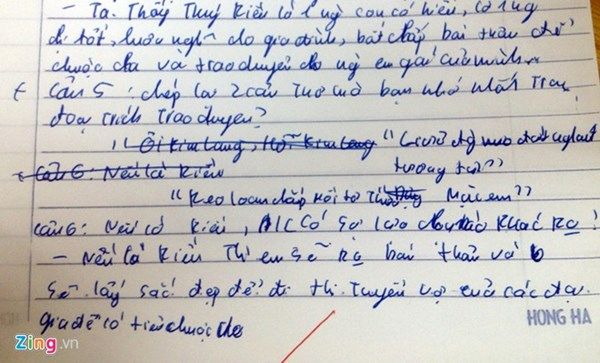 - Ta. Thấy Thuý Kiều là 1 ng con có hiếu, có lòng
tốt, luôn nghĩ cho gia đình, bất chấp bản thân để
chuộc cha và trao duyên cho ng em gái của mình
Câu 5: chép lại 2 câu Thơ mà bạn nhớ nhất Trong
đoạn trích Trao duyên?
"Ôi Kim Lang, Hỡi Kim Lang "Giữa đg
Câu 6: Nếu là Kiều tương tư"
"Keo loan chắp mối tơ Thừa Mặc em"
Câu 6: Nếu là Kiều, A/C có sự lựa chọn nào khác ko!
- Nếu là Kiều Thì em sẽ bán thân và
sẽ lấy sắc đẹp để đi thi Tuyển vợ của các đại
gia để có tiền chuộc cha
HONG HA
Zing.vn